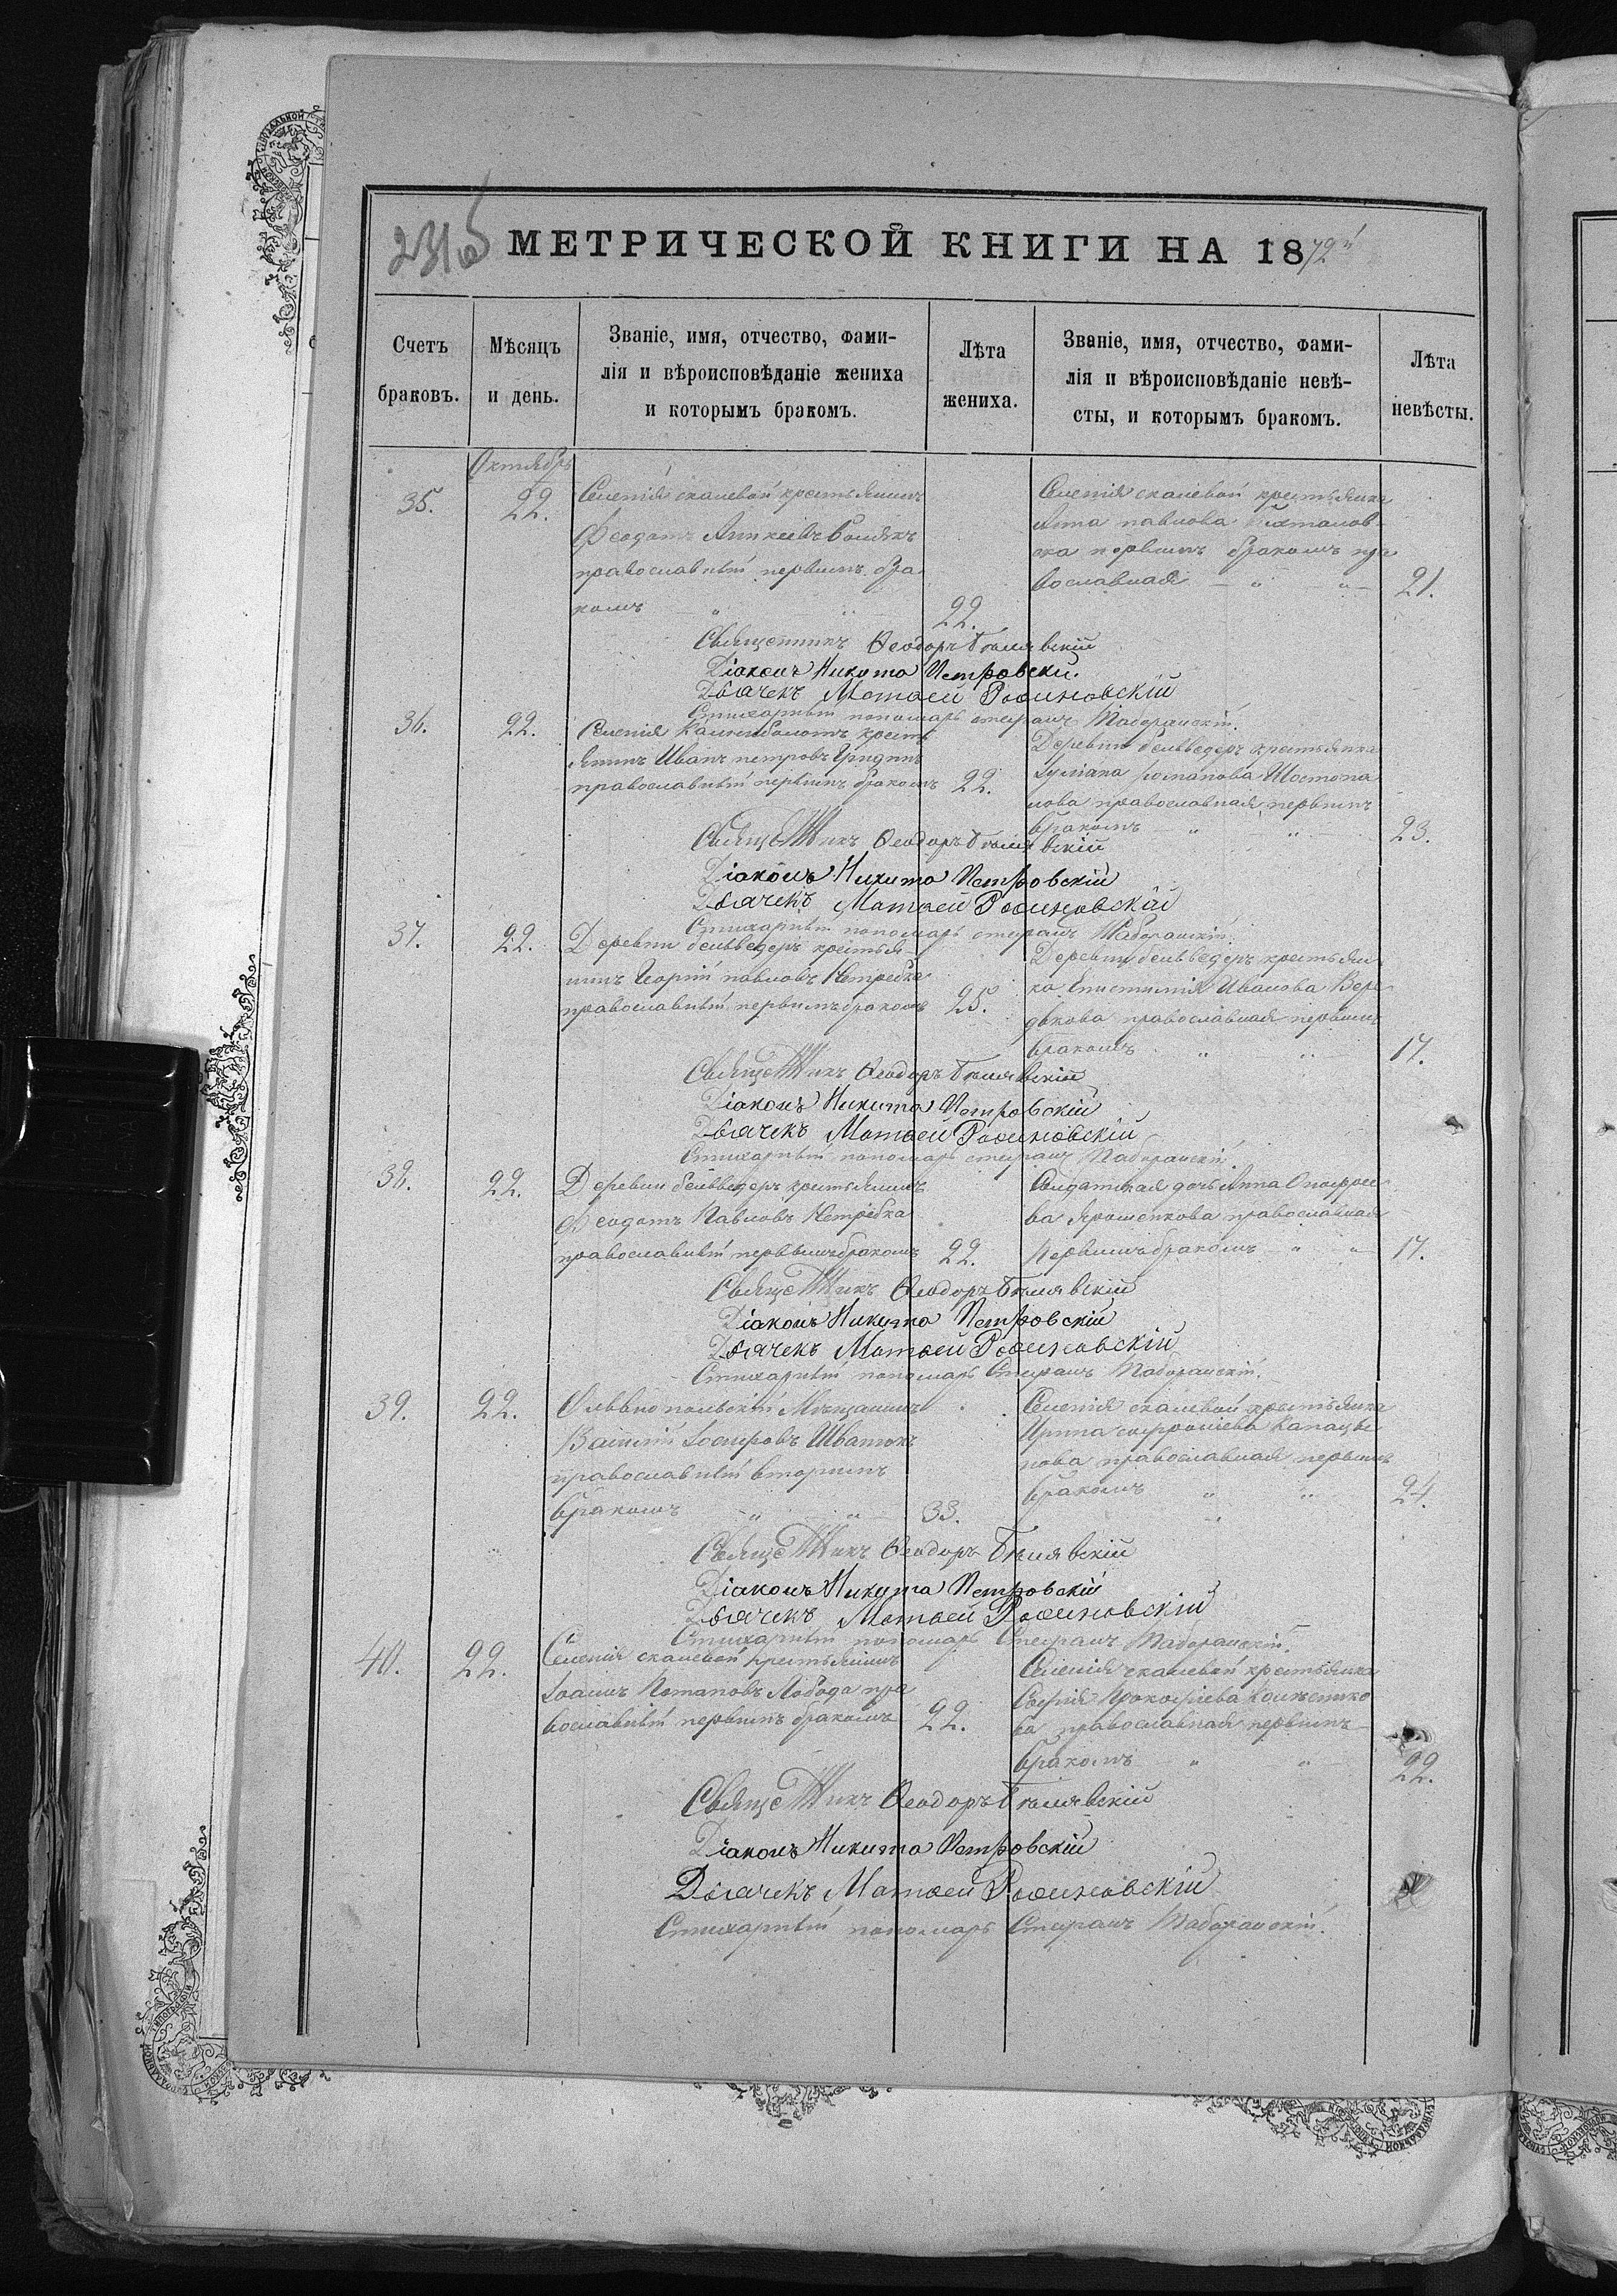 231 об
МЕТРИЧЕСКОЙ КНИГИ НА 1872й
Счетъ браковъ.
Мѣсяцъ и день.
Званіе, имя, отчество, фами-
лія и вѣроисповѣданіе жениха
и которымъ бракомъ.
Лѣта жениха.
Званіе, имя, отчество, фами-
лія и вѣроисповѣданіе невѣ-
сты, и которымъ бракомъ.
Лѣта невѣсты.
Октябрь
35.
22.
Селенія скалевой крестьянинъ
Феодотъ
православный первымъ бра
комъ
22.
Селенія скалевой крестьянка
Анна павлова
первымъ бракомъ пра
вославная
21.
Священникъ Ѳеодоръ Бѣлявскій
Діаконъ Никита Петровскій
Дьячекъ Матѳей
Стихарный пономарь стефанъ
36.
22.
Селенія крестья
янинъ Иванъ петровъ
православный первымъ бракомъ
22.
Деревни бельведеръ крестьянка
романова
православная первымъ
бракомъ
23.
Священникъ Ѳеодоръ Бѣлявскій
Діаконъ Никита Петровскій
Дьячекъ Матѳей
Стихарный пономарь стефанъ
37.
22.
Деревни бельведеръ крестья
нинъ Георгій павловъ Нетребка
православный первымъ бракомъ
25.
Деревни бельведеръ крестьян
ка Иванова
православная первымъ
бракомъ
17.
Священникъ Ѳеодоръ Бѣлявскій
Діаконъ Никита Петровскій
Дьячекъ Матѳей
Стихарный пономарь стефанъ
38.
22.
Деревни бельведеръ крестьянинъ
Феодотъ Павловъ Нетребка
православный первымъ бракомъ
22.
Солдатская дочь Анна Онофрее
ва Ярошенкова православная
первымъ бракомъ
17.
Священникъ Ѳеодоръ Бѣлявскій
Діаконъ Никита Петровскій
Дьячекъ Матѳей
Стихарный пономарь Стефанъ
39.
22.
Ольвіопольскій Мѣщанинъ
Іосифовъ
православный вторымъ
бракомъ
33.
Селенія скалевой крестьянка
Ирина
нова православная первымъ
бракомъ
24.
Священникъ Ѳеодоръ Бѣлявскій
Діаконъ Никита Петровскій
Дьячекъ Матѳей
Стихарный пономарь Стефанъ
40.
22.
Селенія скалевой крестьянинъ
Іоаннъ Потаповъ Лобода пра
вославный первымъ бракомъ
22.
Селенія скалевой крестьянка
Софія Прокофіева
ва православная первымъ
бракомъ
22.
Священникъ Ѳеодоръ Бѣлявскій
Діаконъ Никита Петровскій
Дьячекъ Матѳей
Стихарный пономарь Стефанъ